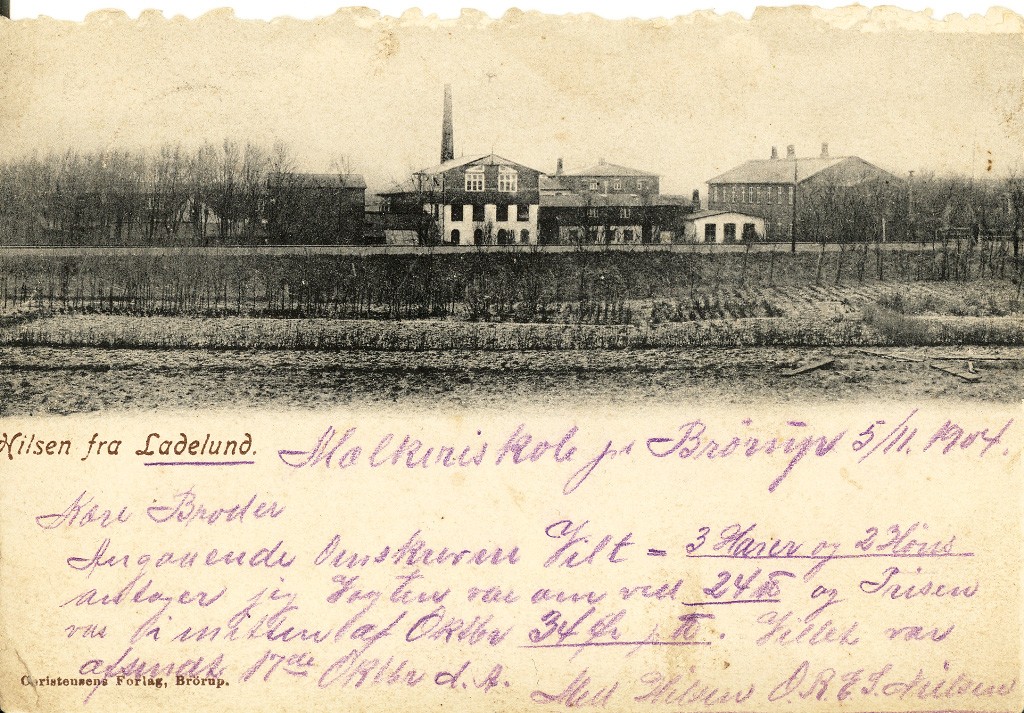 Hilsen fra Ladelund. Mælkeriskole pr Brörup 5/11. 1904.
Kære Broder
Angaaende Omskreven Vilt = 3 Harer og 2 Höns
antager jeg Vægten var om ved 24 ℔ og Prisen
var i mitten af Oktbr 34 Öre pr ℔. Vildet var
afsendt 17de Oktbr d. A. Med Hilsen O.R.E.S. Nielsen
Christensens Forlag, Brörup.